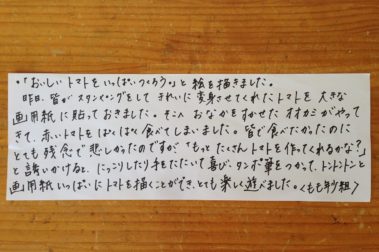 ・「おいしいトマトをいっぱいつくろう。」と絵を描きました。
昨日、皆がスタンピングをして きれいに変身させてくれたトマトを 大きな
画用紙に貼っておきました。そこへ おなかをすかせた オオカミがやって
きて、赤いトマトをぱくぱく食べてしまいました。皆で食べたかったのに
とても残念で悲しかったのですが、「もっと たくさん トマトを作ってくれるかな?」
と誘いかけると、にっこりしたり手をたたいて喜び、タンポ筆をつかって、トントントンと
画用紙いっぱいにトマトを描くことができ、とても楽しく遊べました。〈もも年少組〉